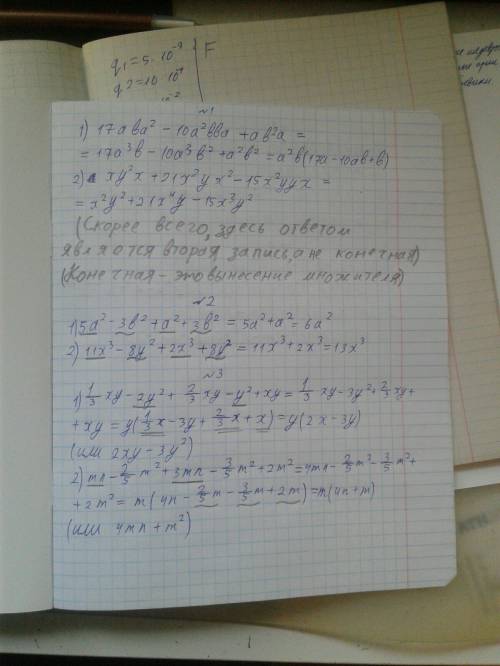 q1=5·10⁻⁹ F
q2=10·10⁻⁹
№1
1) 17aва² - 10a²вва + ав²а =
= 17a³в - 10a³в² + a²в² = a²в(17a - 10ав + в)
2) xy²x + 21x²yx² - 15x²yyx =
= x²y² + 21x⁴y - 15x³y²
(Скорее всего, здесь ответом
является вторая запись, а не конечная)
(Конечная - это вынесение множителя)
№2
1) 5a² - 3в² + a² + 3в² = 5a² + a² = 6a²
2) 11x³ - 8y² + 2x³ + 8y² = 11x³ + 2x³ = 13x³
№3
1) 1/3 xy - 2y² + 2/3 xy - y² + xy = 1/3 xy - 3y² + 2/3 xy +
+ xy = y(1/3 x - 3y + 2/3 x + x) = y(2x - 3y)
(или 2xy - 3y²)
2) mn - 2/5 m² + 3mn - 3/5 m² + 2m² = 4mn - 2/5 m² - 3/5 m² +
+ 2m² = m(4n - 2/5 m - 3/5 m + 2m) = m(4n + m)
(или 4mn + m²)